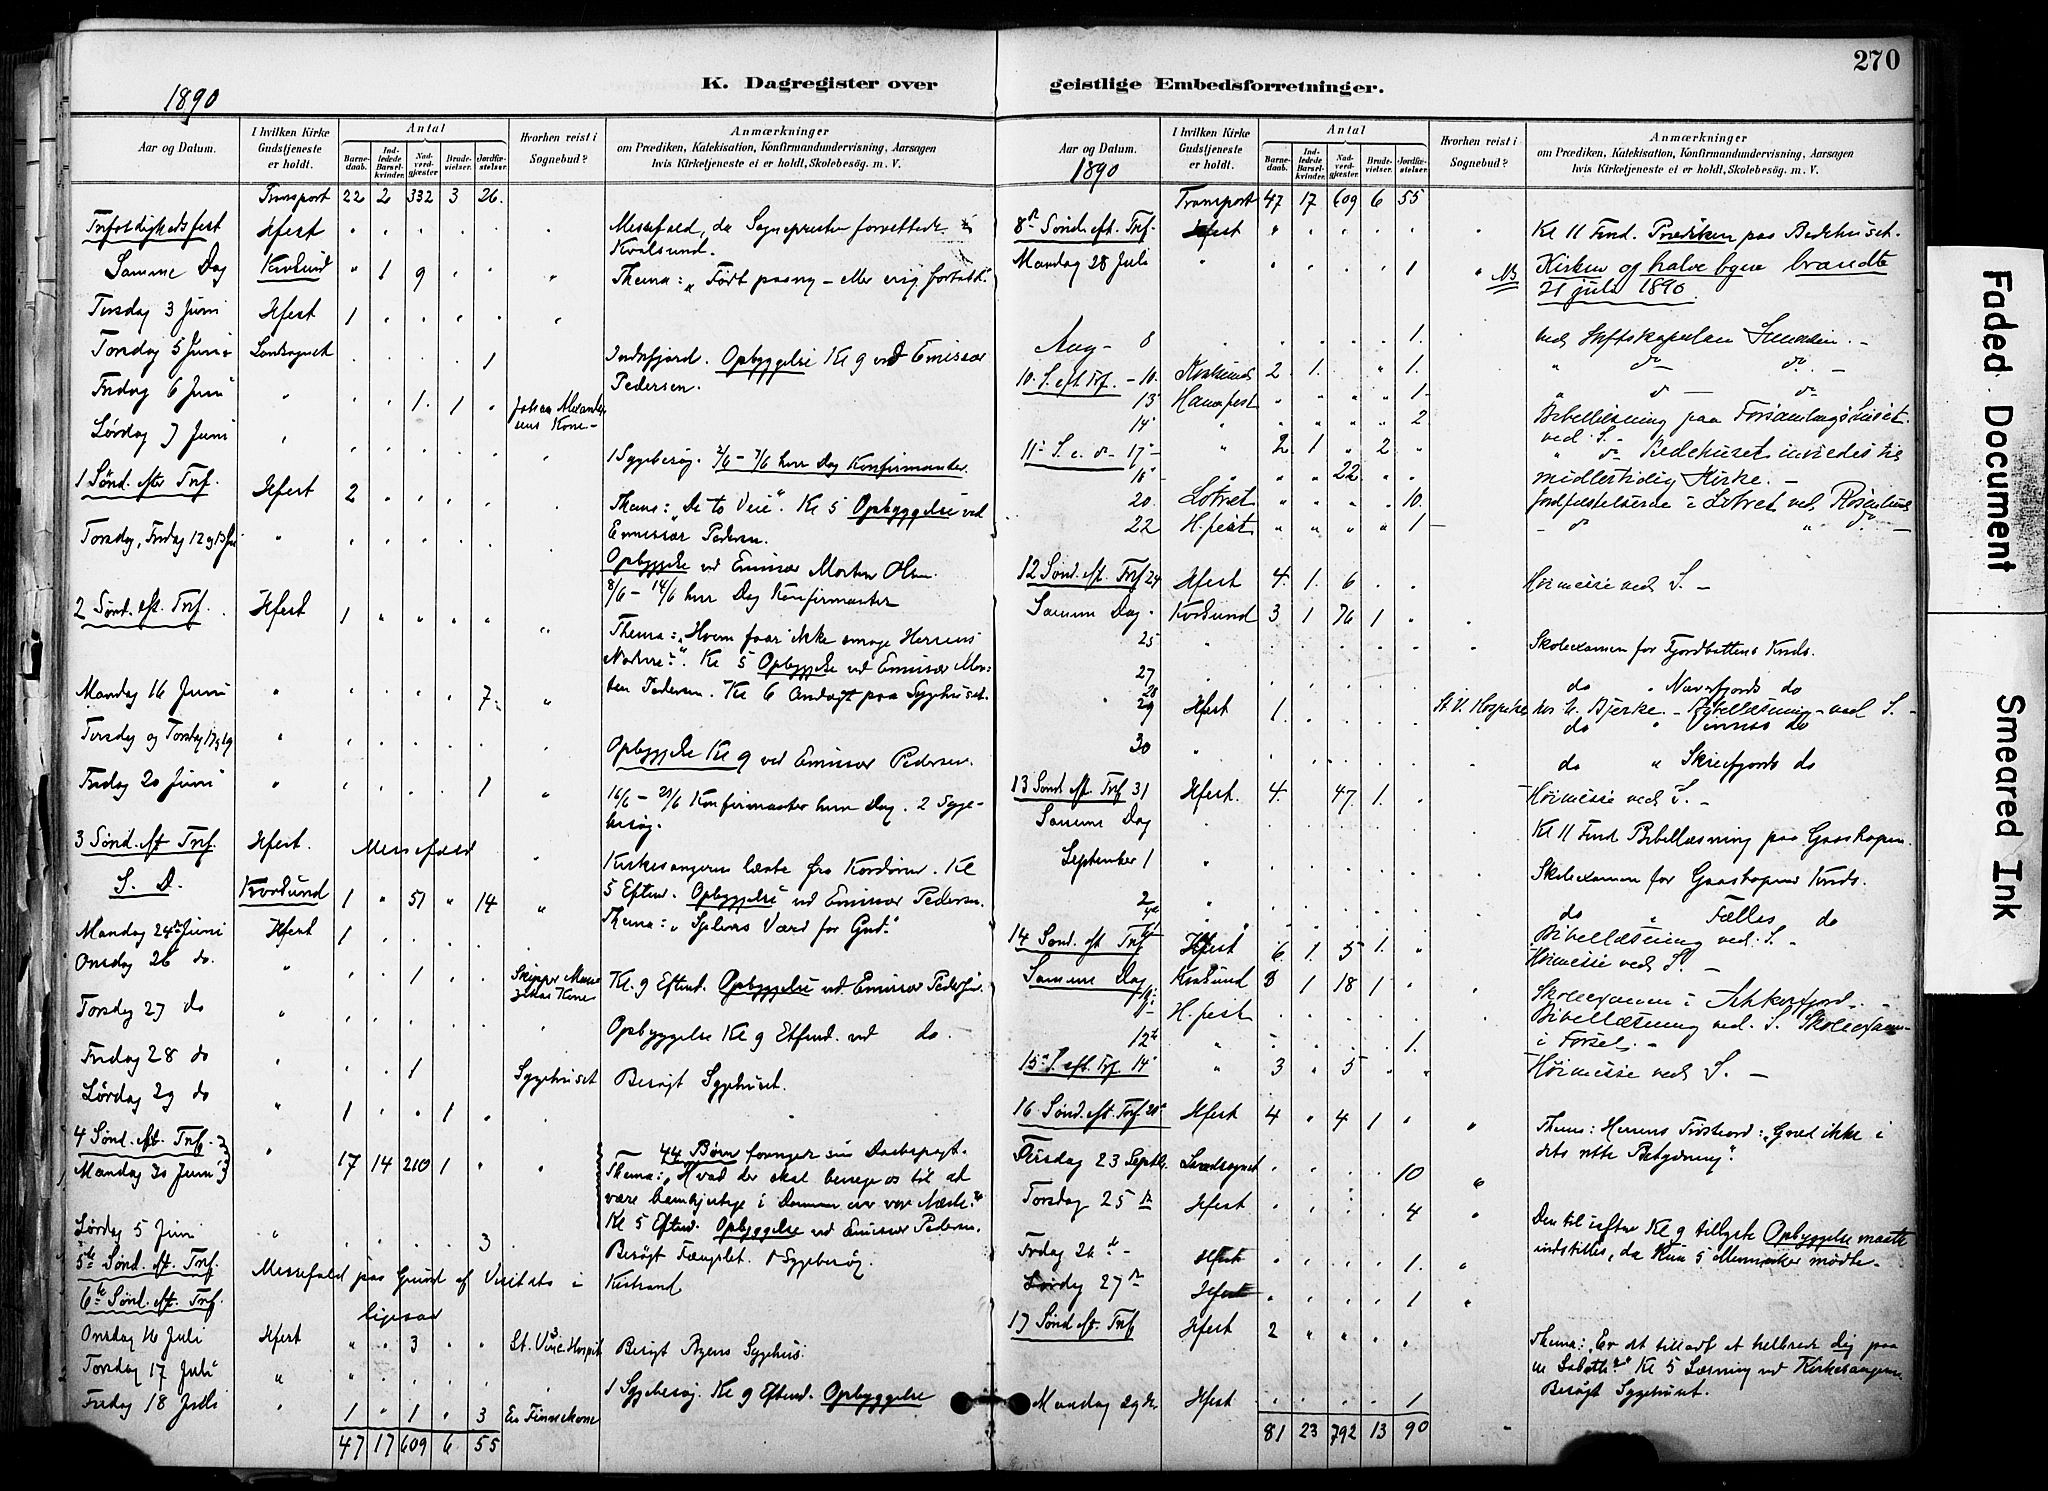 270
K. Dagregister over geistlige Embedsforretninger.
1890
Aar og Datum.
I hvilken Kirke Gudstjeneste er holdt.
Antal
Barnedaab.
Indledede Barselkvinder.
Nadverdgjæster
Brudevielser.
Jordfæstelser.
Hvorhen reist i Sognebud?
Anmærkninger
om Prædiken, Katekisation, Konfirmandundervisning, Aarsagen
hvis Kirketjeneste ei er holdt, Skolebesög. m. V.
Transport 22 2 332 3 26.
Trefoldighedsfest Hfest Messefald, da Sognepresten forrettede i
Kvalsund.
Samme Dag Kvalsund " 1 9 Thema: "Født paany – eller evig fortabt."
Tirsdag 3 Juni Hfest 1
Torsdag 5 Juni Landsognet 1 Indrefjord. Opbyggelse Kl 9 ved Emissær
Pedersen.
Fredag 6 Juni " 1. 1 Johan
Kone –
Lørdag 7 Juni 1 Sygebesøg. 2/6 – 7/6 hver Dag Konfirmander.
1 Sønd. efter Tref. Hfest 2 Thema: "De to Veie". Kl 5 Opbyggelse ved
Emissær Pedersen.
Torsdag, Fredag 12 og 13 Juni "
Opbyggelse ved Emissær Morten Olsen.
8/6 – 14/6 hver Dag Konfirmanter
2 Sønd. eft. Tref. Hfest 1 Thema: "Hvem faar ikke smage Herrens
Nadvere". Kl 5 Opbyggelse ved Emissær Mor-
ten Pedersen. Kl 6 Andagt paa Sygehuset.
Mandag 16 Juni " 7
Tirsdag og Torsdag 17 og 19 " Opbyggelse Kl 9 ved Emissær Pedersen.
Fredag 20 Juni 1 16/6 – 21/6 Konfirmanter hver Dag. 2 Syge-
besøg.
3 Sønd. eft Tref. Hfest. Messefald Kirkesangeren læste fra Kordøren. Kl
5 Efterm. Opbyggelse ved Emissær Pedersen.
S. D. Kvalsund 1 " 51 " 14 Thema: "Sjælens Værd for Gud."
Mandag 24de Juni Hfest 1
Onsdag 26 do. " 1 Skipper
Kone Kl. 9 Efterm. Opbyggelse ved Emissær Pedersen.
Torsdag 27 do " Opbyggelse Kl 9 Efterm. ved do.
Fredag 28 do 1 Sygehuset Besøgt Sygehuset.
Lørdag 29 do " 1 1
4 Sønd. eft. Tref. 44 Børn fornyer sin Daabspagt.
Mandag 30 Juni 17 14 210 1 Thema: "Hvad der skal bevæge os til at
være barmhjertige i Dommen over vor Næste."
Kl 5 Efterm. Opbyggelse ved Emissær Pedersen.
Lørdag 5 Juni " 3 Besøgt Fængslet. 1 Sygebesøg.
5te Sønd. eft. Tref. Messefald paa Grund af Visitats i Kistrand
6te Sønd. eft. Tref. ligesaa
Onsdag 16 Juli Hfest 3 St. Vinc. Hospit. Besøgt Byens Sygehus.
Torsdag 17 Juli "
1 Sygebesøg. Kl 9 Efterm. Opbyggelse
Fredag 18 Juli " 1 " 1 " 3 En Finnekone
47 17 609 6 55
Aar og Datum.
1890
I hvilken Kirke Gudstjeneste er holdt.
Antal
Barnedaab.
Indledede Barselkvinder.
Nadverdgjæster
Brudevielser.
Jordfæstelser.
Hvorhen reist i Sognebud?
Anmærkninger
om Prædiken, Katekisation, Konfirmandundervisning, Aarsagen
hvis Kirketjeneste ei er holdt, Skolebesög. m. V.
Transport 47 17 609 6 55
8de Sønd. eft. Tref. Hfest Kl 11 Form. Prædiken paa Bedehuset.
Mandag 28 Juli " 1 NB Kirken og halve byen brændte
21 juli 1890.
Aug – 8 1. ved Stiftskapellan –
10. S. eft. Tref. – 10. Kvalsund 2 1. " 1. " do do. –
13 Hammerfest 1. " do – do
14 " 2 Bibellæsning paa Forsamlingshuset.
ved S. –
11te S. e. do – 17 – " 2 1 " 2 " do Bedehuset indviedes til
midlertidig Kirke. –
" 22
20. Lotret 10. Jordfæstelserne i Lotret ved
22 H.fest 1 – – do " do –
12 Sønd. eft. Tref 24 Hfest 4 1. 6 Høimesse ved S. –
Samme Dag. Kvalsund 3 1 76 1
25 " Skoleexamen for Fjordbottens Kreds.
27 do " Næverfjords do
28
29 Hfest 1. St. V. Hospital hos Bjerke. – Bibellæsning – ved S. –
do " do
30 " do " Skreifjords do
13 Sønd. eft. Tref 31 Hfest. 4. 47. 1. Høimesse ved S. –
Samme Dag Kl 11 Form Bibellæsning paa Gaashopen.
September 1 " Skoleexamen for Gaashopens Kreds.
2 " do " Fælles do
Bibellæsning ved. S. –
14 Sønd. eft Tref Hfest 6 1 5 1. Høimesse ved S. –
Samme Dag Kvalsund 3 1 18 1 Skoleexamen i Akkarfjord. –
H.fest Bibellæsning ved. S. Skoleexamen
12te " 1. i Forsøl. –
15de S. eft. Tref. 14 " 3 " 5 Høimesse ved S. –
16 Sønd. eft. Tref 21 Hfest 4 " 4 1 Thema: Herrens Trøsteord: "Græd ikke" i
dets rette Betydning".
Tirsdag 23 Septbr. Landsognet 10
Torsdag 25de Hfest 4 Den til iaften Kl 9 tillyste Opbyggelse maatte
indstilles, da kun 5 Mennesker mødte.
Fredag 26de – Hfest 1.
Lørdag 27de Hfest 1
17 Sønd. eft. Tref Hfest 2 Thema: "Er det tilladt at helbrede dig paa
en Sabath?" Kl 5 Læsning ved Kirkesangeren
Besøgt Sygehuset.
Mandag 29de Hfest 1
81 23 792 13 90
Faded Document
Smeared Ink